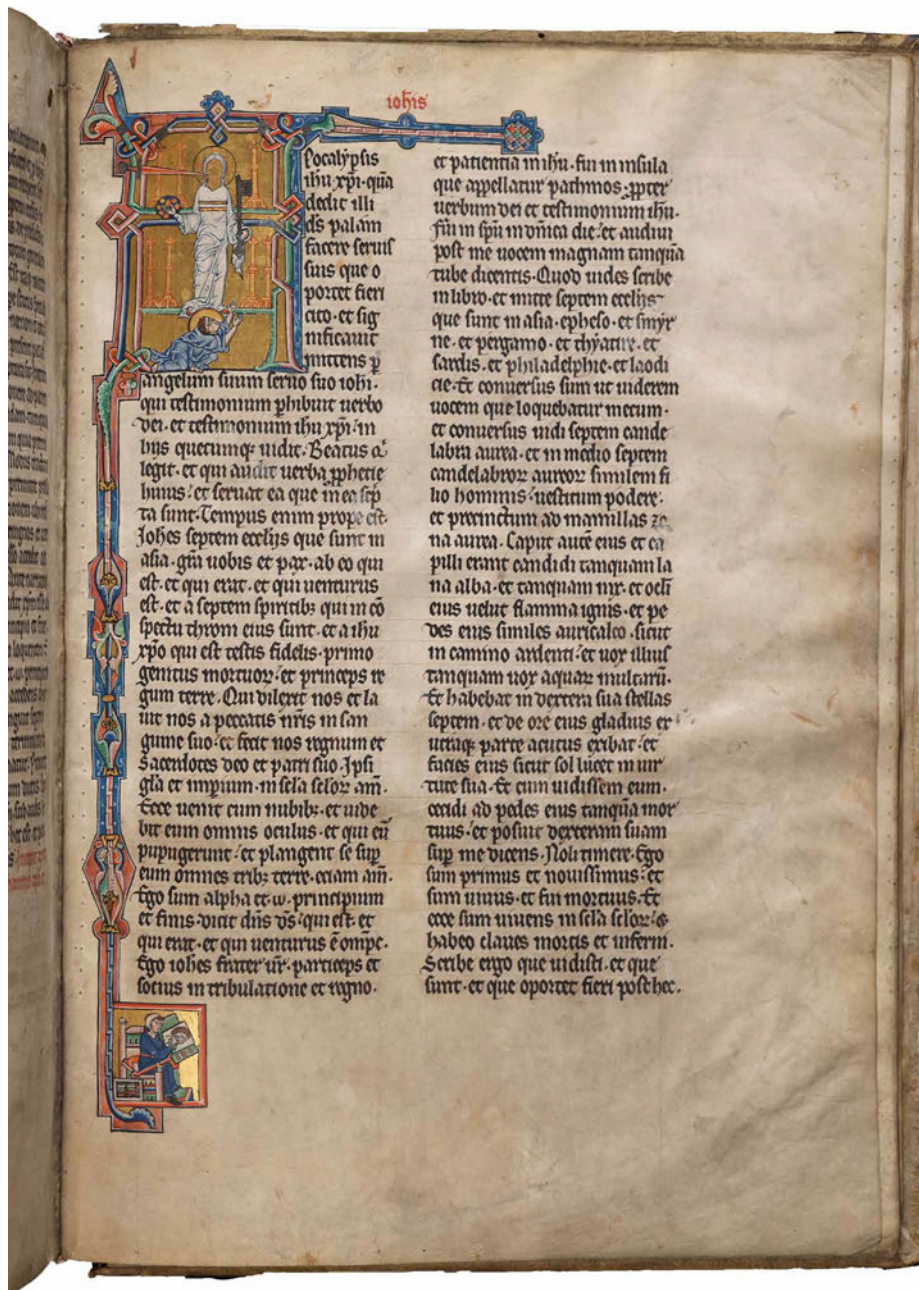 ioh̅is
APocalẏpsis
ihu xp̅i·qua̅
dedit illi
ds̅ palam
facere seruis
suis que o
portet fieri
cito·et sig
nificauit
mittens p̲
angelum suum seruo suo iohi·
qui testimonium phibuit uerbo
dei·et testimonium ihu xp̅i·in
hijs quecumq; uidit·Beatus q̅
legit·et qui audit uerba ꝓphetie
huius·et seruat ea que in ea sc̅p
ta sunt·Tempus enim prope est·
Iohes septem ecclijs que sunt in
asia·gr̅a uobis et pax·ab eo qui
est·et qui erat·et qui uenturus
est·et a septem spiritib; qui in co̅
spectu throni eius sunt·et a ihu
xp̅o qui est testis fidelis·primo
genitus mortuoꝝ·et princeps re
gum terre·Qui dilexit nos et la
uit nos a peccatis nr̅is in san
guine suo·et fecit nos regnum et
sacerdotes deo et patri suo·Ipsi
gl̅a et imp̲ium·in sc̅la sc̅loꝝ am̅·
Ecce uenit cum nubib;·et uide
bit eum omnis oculus·et qui eu̅
pupugerunt·et plangent se sup̲
eum omnes trib; terre·etiam am̅·
Ego sum alpha et·ω·principium
et finis·dicit dn̅s ds̅·qui est·et
qui erat·et qui uenturus e̅ omp̅s·
Ego iohes frater ur̅·particeps et
socius in tribulatione et regno·
et patientia in ihu·fui in insula
que appellatur pathmos·ꝓpter
uerbum dei et testimonium ihu·
fui in sp̅u in dn̅ica die·et audiui
post me uocem magnam tanqua̅
tube dicentis·Quod uides scribe
in libro·et mitte septem ecclijs
que sunt in asia·epheso·et smẏr
ne·et pergamo·et thẏatire·et
sardis·et philadelphie·et laodi
cie·Et conuersus sum ut uiderem
uocem que loquebatur mecum·
et conuersus uidi septem cande
labra aurea·et in medio septem
candelabroꝝ aureoꝝ similem fi
lio hominis·uestitum podere·
et precinctum ad mamillas zo
na aurea·Caput aute̅ eius et ca
pilli erant candidi tanquam la
na alba·et tanquam nix·et ocli
eius uelut flamma ignis·et pe
des eius similes auricalco·sicut
in camino ardenti·et uox illius
tanquam uox aquaꝝ multaru̅·
Et habebat in dextera sua stellas
septem·et de ore eius gladius ex
utraq; parte acutus exibat·et
facies eius sicut sol lucet in uir
tute sua·Et cum uidissem eum·
cecidi ad pedes eius tanqua̅ mor
tuus·et posuit dexteram suam
sup̲ me dicens·Noli timere·Ego
sum primus et nouissimus·et
sum uiuus·et fui mortuus·Et
ecce sum uiuens in sc̅la sc̅loꝝ·⁊
habeo claues mortis et inferni·
Scribe ergo que uidisti·et que
sunt·et que oportet fieri post hec·